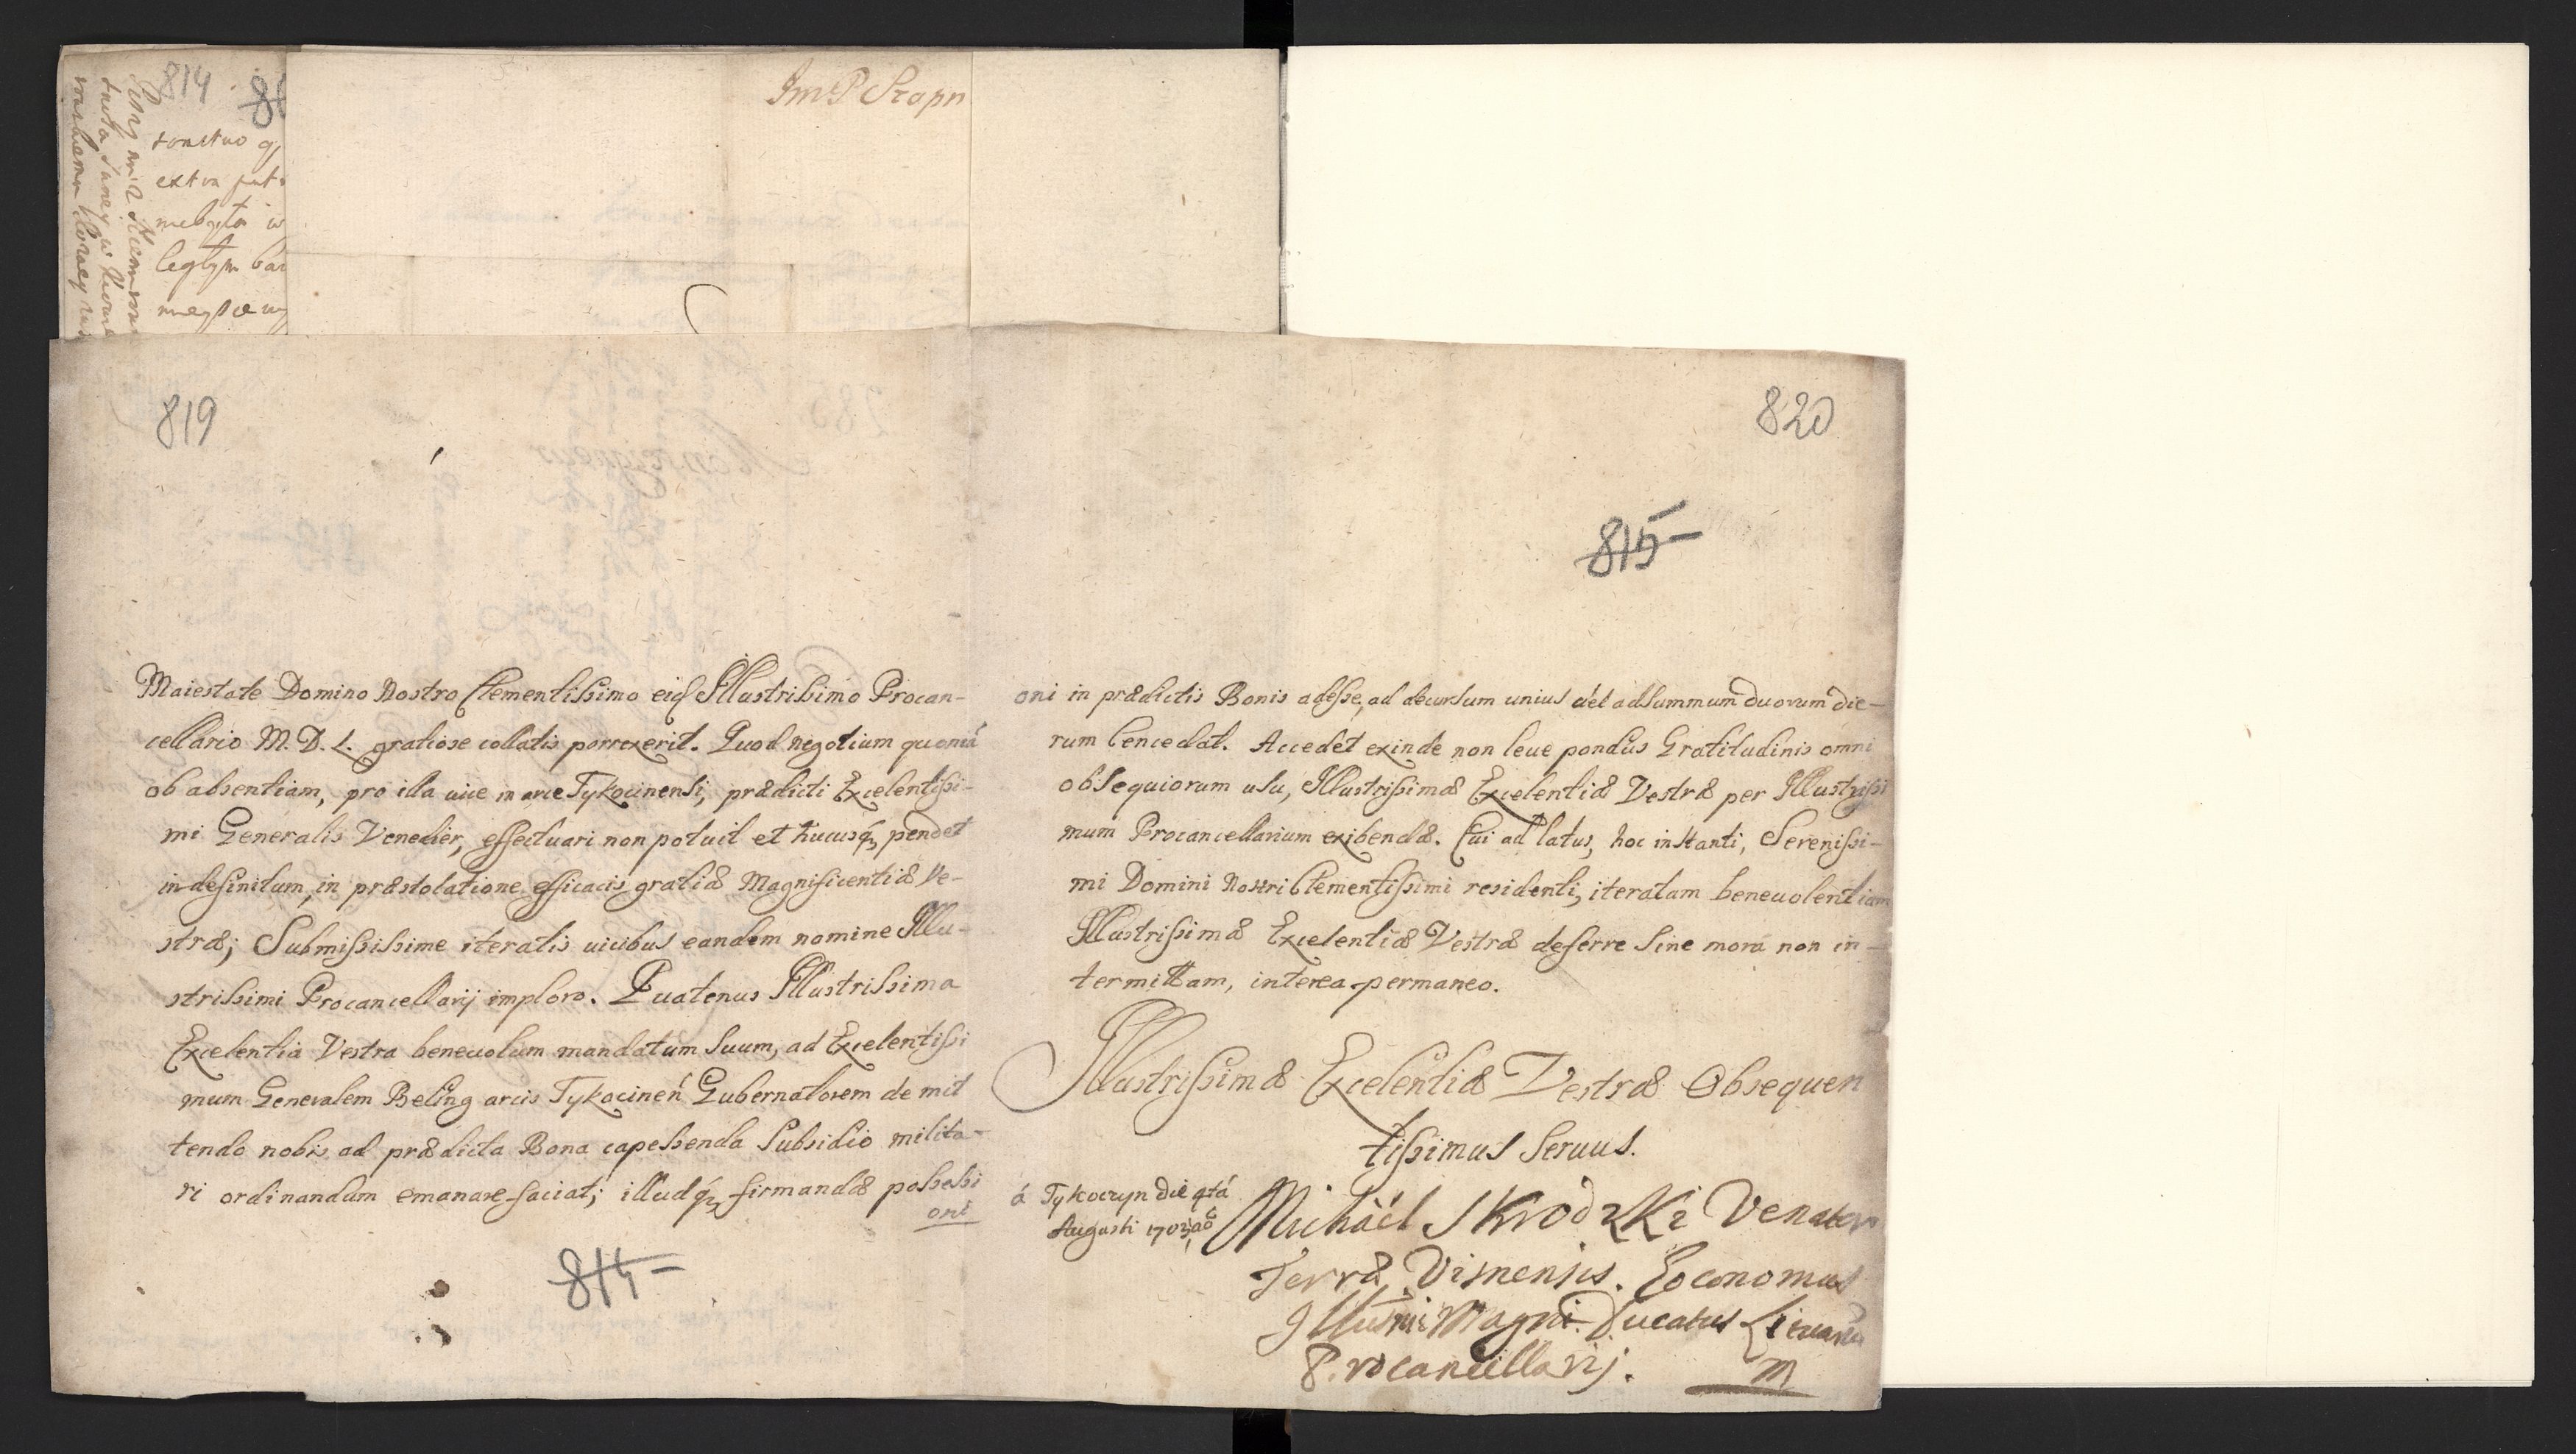 814
constuo
extra
niebyła w
ImP Szopn
819
Maiestate Domino Nostro Clementissimo eiusd Illustrissimo Procan-
cellario M. D. L. gratiose collatis porrexerit. Quod negotium quoniá
ob absentiam, pro illa uice in arce Tykocinensi, prædicti Excelentissi-
mi Generalis Venedier, effectuari non potuit et hucusq; pendet
indefinitum, in præstolatione efficacis gratiæ Magnificentiæ Ve-
stræ; Submississime iteratis uicibus eandem nomine Illu-
strissimi Procancellarij imploro. Quatenus Illustrissima
Excelentia Vestra beneuolum mandatum suum, ad Excelentissi
mum Generalem Beling arcis Tykocineń Gubernatorem de mit
tendo nobis ad prædicta Bona capessenda Subsidio milita-
ri ordinandum emanare faciat; illudq; firmandæ possessi
oni
814-
820
815-
oni in prædictis Bonis adesse, ad decursum unius uel ad summum duorum die-
rum Cencedat. Accedet exinde non leue pondus Gratitudinis omni
obsequiorum usu, Illustrissimæ Excelentiæ Vestræ per Illustrissi
mum Procancellarium exibendæ. Cui ad latus, hoc instanti, Serenissi-
mi Domini Nostri Clementissimi residenti, iteratam beneuolentiam
Illustrissimæ Excelentiæ Vestræ deferre sine morá non in-
termittam, interea permaneo.
Illustrissimæ Excelentiæ Vestræ Obsequen
tissimus Seruus.
á Tykoczyn die 4tá
Augusti 1703
Michäel Skrodzki Venator
Terræ Visnensis. Eoconomus
Illustrmi Magni Ducatus Lituaniæ
Procancellarij. m